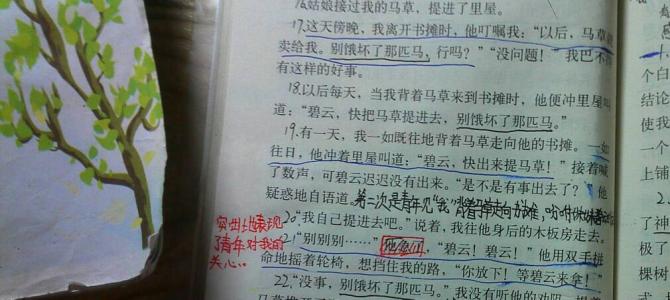 16姑娘接过我的马草，提进了里屋。
17.这天傍晚，我离开书摊时，他叮嘱我：“以后，马草
卖给我。别饿坏了那匹马，行吗？”“没问题！”我巴不得
有这样的好事。
18.以后每天，当我背着马草来到书摊时，他便冲里屋叫
道：“碧云，快把马草提进去，别饿坏了那匹马。”
19.有一天，我一如既往地背着马草走向他的书摊。一如
往日，他冲着里屋叫道：“碧云，快出来提马草！”接着喊
了数声，可碧云迟迟没有出来。“是不是有事出去了？”他
疑惑地自语道。
第二次是青年见“我”背着
20.“我自己提进去吧。”说着，我往他身后的木板房走去。
21“别别别……”他急了，“碧云！碧云！”他用双手拼
命地摇着轮椅，想挡住我的路，“你放下！等碧云来拿！”
22.“没事，别饿坏了那匹马。”我没有听他的劝阻，
突出地表现
了青年对我的
关心
结论
使我
一个
上铺
了神
极了
棵树